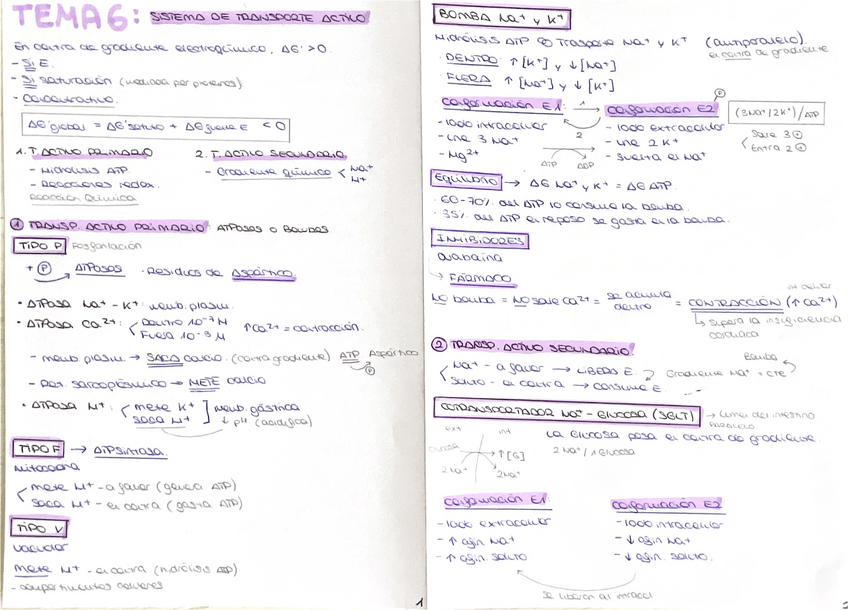 TEMA 6: SISTEMA DE TRANSPORTE ACTIVO
En contra de gradiente electroquímico, ΔG > 0
- Sí E.
- Sí saturación (mediada por proteínas)
- Concentrativo.
ΔG global = ΔG soluto + ΔG fuente E < 0
1. T. ACTIVO PRIMARIO
- Hidrólisis ATP
- Reacciones redox.
Reacción Química
2. T. ACTIVO SECUNDARIO
- Gradiente químico < Na+
H+
① TRANSP. ACTIVO PRIMARIO: ATPasas o Bombas
TIPO P Fosforilación
+ P ATPasas · Residuos de Aspártico
• ATPasa Na+ - K+: memb. plasm.
• ATPasa Ca2+: Dentro 10⁻⁷ M
Fuera 10⁻³ M
↑Ca2+ = contracción.
- memb plasm → SACA calcio (contra gradiente) ATP Aspártico
P
- Ret. sarcoplásmico → METE calcio
• ATPasa H+: mete K+
saca H+
memb. gástrica
↓ pH (acidifica)
TIPO F → ATPsintasa.
Mitocondria
mete H+ - a favor (genera ATP)
saca H+ - en contra (gasta ATP)
TIPO V
Vacuolar
mete H+ - en contra (hidrólisis ATP)
- compartimentos celulares
1
BOMBA Na+ y K+
Hidrólisis ATP Trasporte Na+ y K+ (antiparalelo)
en contra de gradiente
· DENTRO: ↑ [K+] y ↓ [Na+]
· FUERA: ↑ [Na+] y ↓ [K+]
Conformación E1
- lado intracelular
- Une 3 Na+
- Mg2+
1
2
ATP ADP
P
Conformación E2
- lado extracelular
- une 2 K+
- suelta el Na+
(3Na+/2K+)/ATP
Sale 3 +
Entra 2 +
Equilibrio → ΔG Na+ y K+ = ΔG ATP.
· 60-70% del ATP lo consume la bomba.
· 35% del ATP en reposo se gasta en la bomba.
INHIBIDORES
Ouabaína
→ FÁRMACO
NO bomba = NO sale Ca2+ = se acumula dentro = CONTRACCIÓN (↑ Ca2+)
↳ Supera la insuficiencia cardíaca
② TRANSP. ACTIVO SECUNDARIO.
Na+ - a favor → LIBERA E
Soluto - en contra → consume E
Bomba
Gradiente Na+ = CTE
COTRANSPORTADOR Na+ - GLUCOSA (SGLT) → Lumen del intestino
ext int
Glucosa
↑[G]
2Na+ 2Na+
La Glucosa pasa en contra de gradiente.
2 Na+ / 1 Glucosa
Conformación E1
- lado extracelular
- ↑ afin Na+
- ↑ afin. soluto
Conformación E2
- lado intracelular
- ↓ afin. Na+
- ↓ afin. soluto.
se liberan al intracel